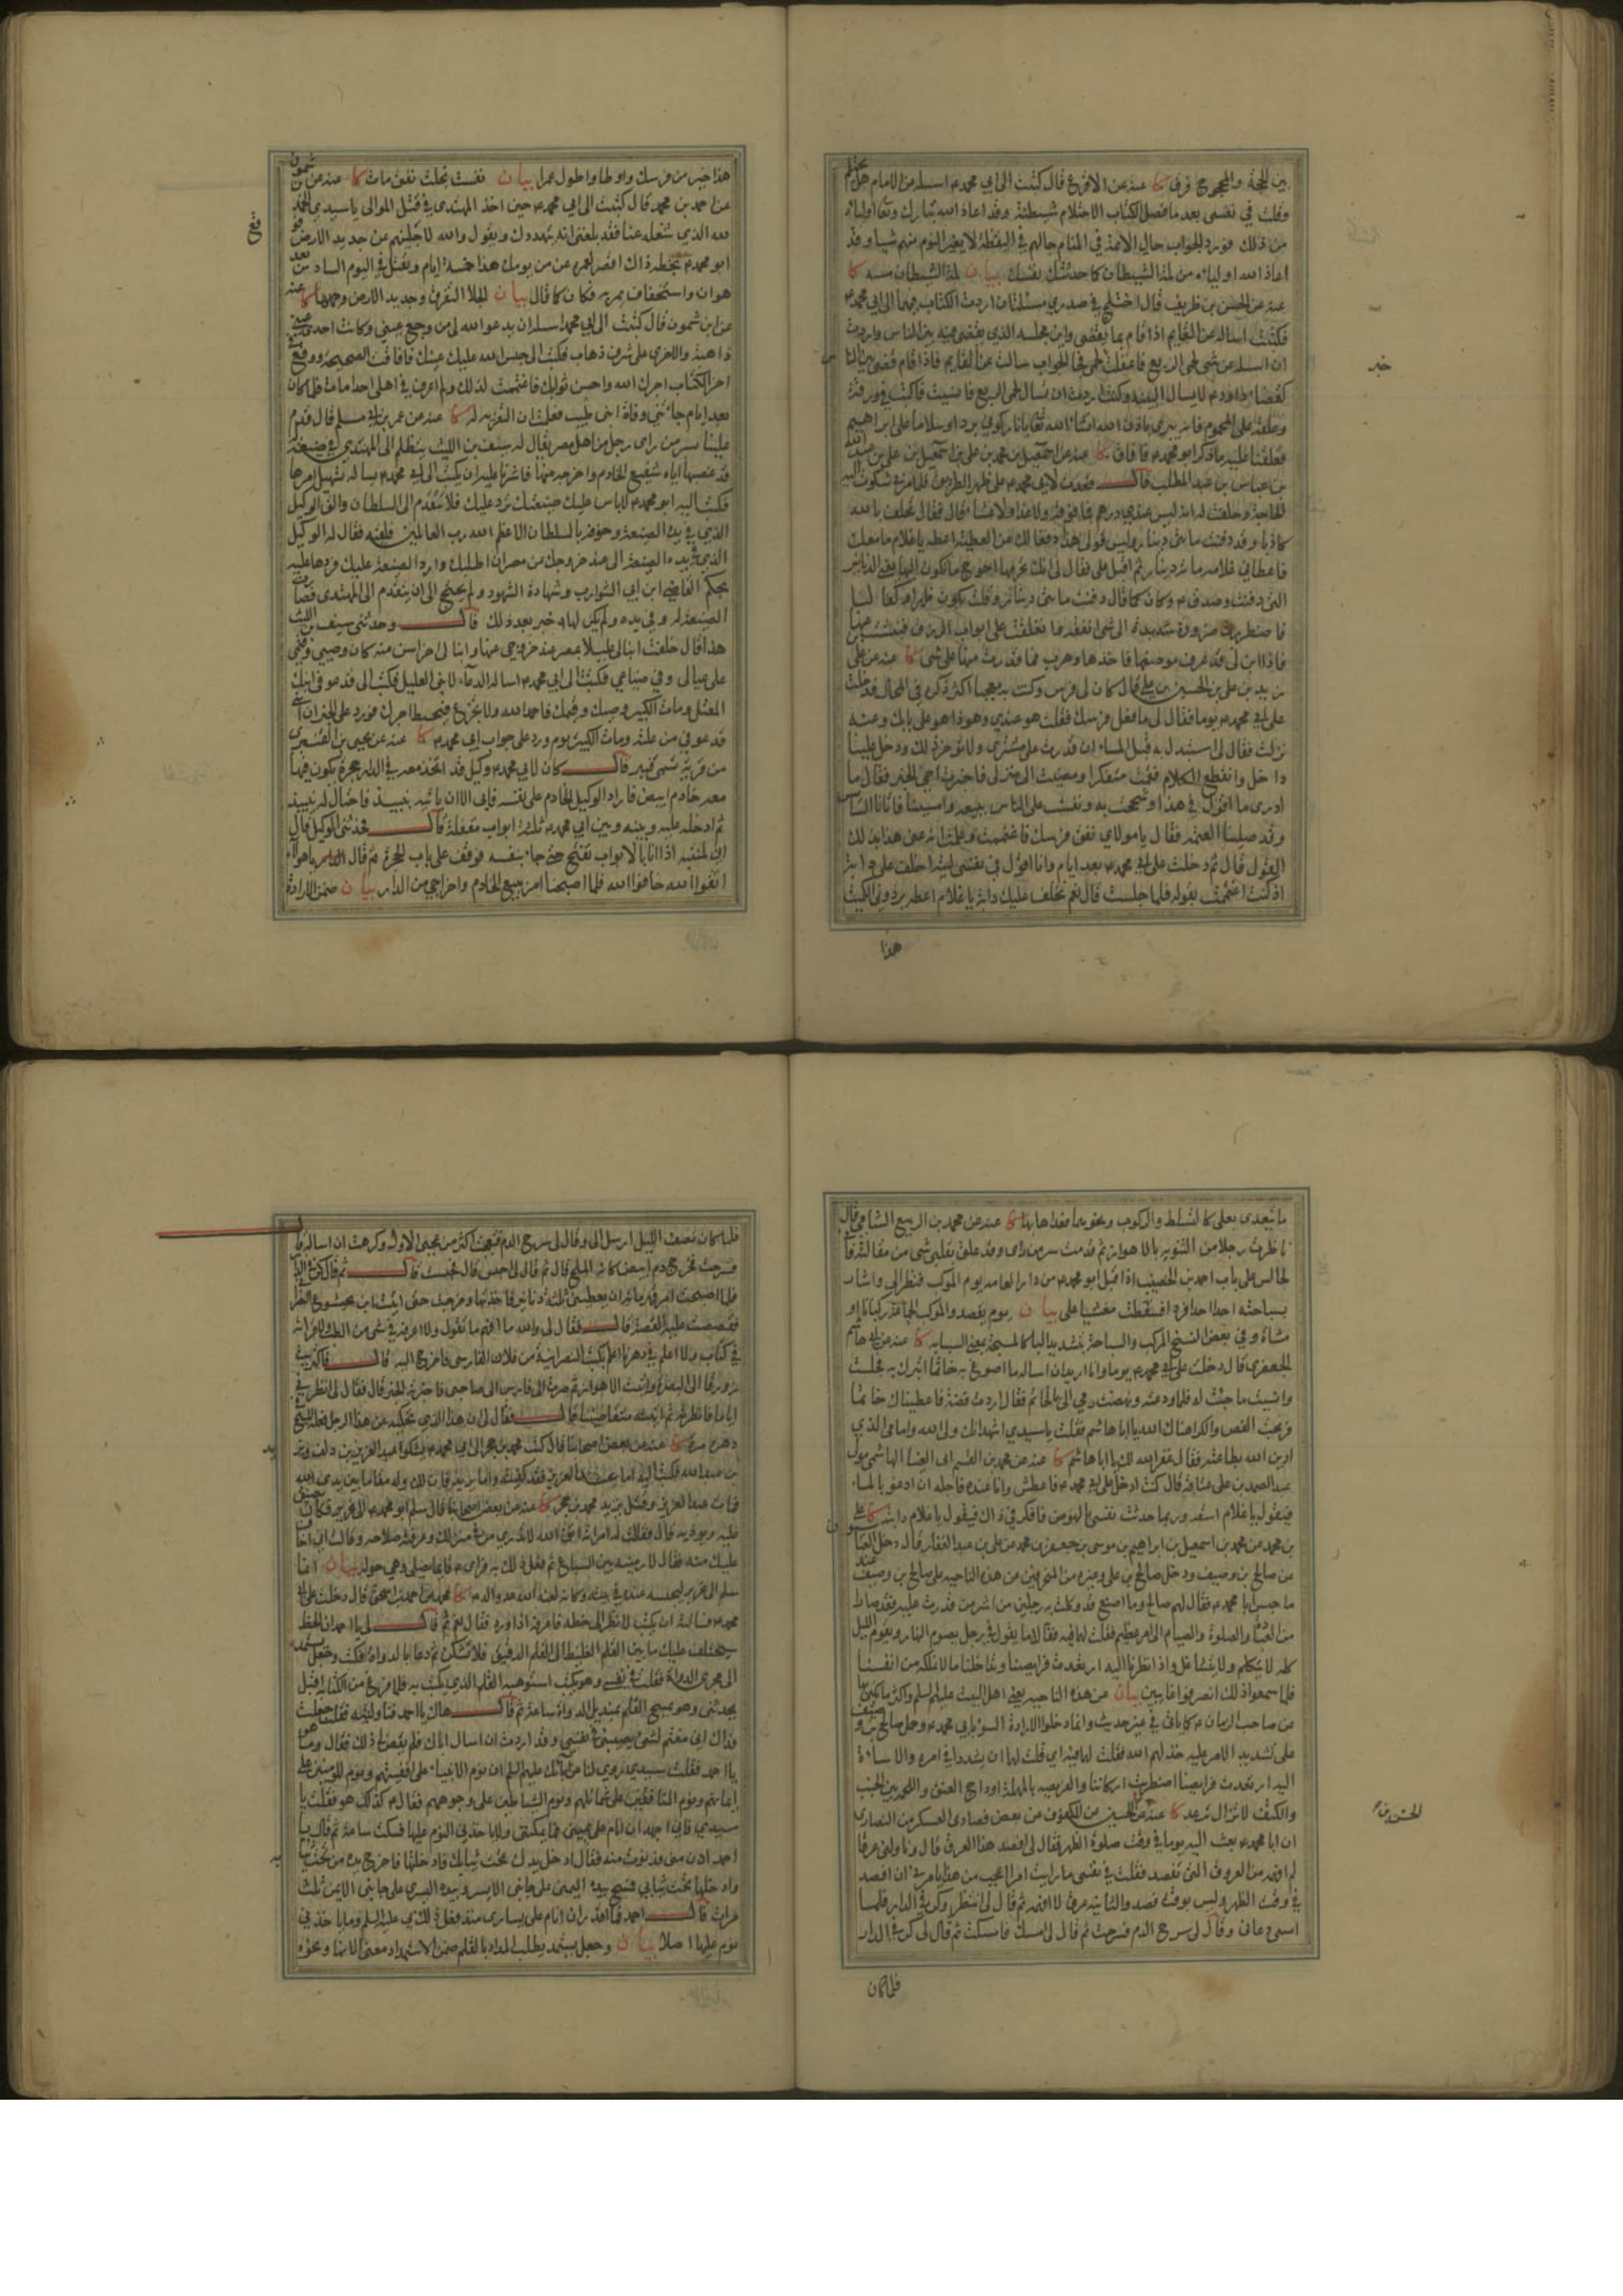 بين الحجة والمحجوج فرق كا عنه عن الاقرع قال كتبت الى ابي محمد ع اسئله عن الامام هل يحتلم
وقلت في نفسى بعد ما فصل الكتاب الاحتلام شيطنة وقد اعاذ الله تبارك وتعا اولياءه
من ذلك فورد الجواب حال الائمة في المنام حالهم في اليقظة لا يغير النوم منهم شيا وقد
اعاذ الله اولياءه من لمة الشيطان كما حدثتك نفسك بيان لمة الشيطان مسه كا
عنه عن الحسن بن ظريف قال اختلج في صدري مسئلتان اردت الكتاب بهما الى ابي محمد ع
فكتبت اساله عن القايم اذا قام بما يقضى واين مجلسه الذي يقضى فيه بين الناس واردت
ان اسئله عن شى لحمى الربع فاغفلت الحمى فجا الجواب سالت عن القايم فاذا قام قضى بين الناس
كقضا داود ع لا يسال البينة وكنت اردت ان تسال لحمى الربع فانسيت فاكتب في ورقة
وعلقه على المحموم فانه يبرئ باذن الله انشاء الله يا نار كوني بردا وسلاما على ابراهيم
فعلقنا عليه ما ذكر ابو محمد ع فافاق كا عنه عن اسمعيل بن محمد بن على بن اسمعيل بن على بن عبد الله
بن عباس بن عبد المطلب قال قعدت لابي محمد ع على ظهر الطريق فلما مر بي شكوت اليه
الحاجة وحلفت له انه ليس عندي درهم فما فوقه ولا غدا ولا عشا قال فقال تحلف بالله
كاذبا وقد دفنت مائتى دينار وليس قولى هذا دفعا لك عن العطية اعطه يا غلام ما معك
فاعطاني غلامه مائة دينار ثم اقبل على فقال لى انك تحرمها احوج ما تكون اليها يعنى الدنانير
التى دفنت وصدق ع وكان كما قال دفنت مائتى دينار وقلت يكون ظهرا وكهفا لنا
فاضطررت ضرورة شديدة الى شى انفقه وانغلقت على ابواب الرزق فنبشت عنها
فاذا ابن لى قد عرف موضعها فاخذها وهرب فما قدرت منها على شى كا عنه عن على
بن زيد بن على بن الحسين بن على قال كان لى فرس وكنت به معجبا اكثر ذكره في المحال فدخلت
على ابي محمد ع يوما فقال لى ما فعل فرسك فقلت هو عندي وهو ذا هو على بابك وعنه
نزلت فقال لى استبدل به قبل المساء ان قدرت على مشتري ولا تؤخر ذلك ودخل علينا
داخل وانقطع الكلام فقمت متفكرا ومضيت الى منزلى فاخبرت اخي الخبر فقال ما
ادرى ما اقول في هذا وشححت به ونفست على الناس ببيعه وامسينا فاتانا السائس
وقد صلينا العتمة فقال يا مولاي نفق فرسك فاغتممت وعلمت انه عنى هذا بذلك
القول قال ثم دخلت على ابي محمد ع بعد ايام وانا اقول في نفسى ليته اخلف على دابة
اذ كنت اغتممت بقوله فلما جلست قال نعم نخلف عليك دابة يا غلام اعطه برذوني الكميت
هذا
خبر
هذا خير من فرسك واوطا واطول عمرا بيان نفست بخلت نفق مات كا عنه عن ابن شمون
عن احمد بن محمد قال كتبت الى ابي محمد ع حين اخذ المهتدى في قتل الموالى يا سيدي الحمد
لله الذي شغله عنا فقد بلغنى انه يتهددك ويقول والله لاجلينهم عن جديد الارض فوقع
ابو محمد ع بخطه ذاك اقصر لعمره عد من يومك هذا خمسة ايام ويقتل في اليوم السادس بعد
هوان واستخفاف يمر به فكان كما قال بيان الجلا التفرق وجديد الارض وجهها كا عنه
عن ابن شمون قال كتبت الى ابي محمد اسئله ان يدعو الله لى من وجع عيني وكانت احدى عيني
ذاهبة والاخرى على شرف ذهاب فكتب الى حبس الله عليك عينك فافاقت الصحيحة ووقع في
اخر الكتاب اجرك الله واحسن ثوابك فاغتممت لذلك ولم اعرف في اهلى احدا مات فلما كان
بعد ايام جاءتنى وفاة ابنى طيب فعلمت ان التعزية له كا عنه عن عمر بن ابي مسلم قال قدم
علينا بسر من راى رجل من اهل مصر يقال له سيف بن الليث يتظلم الى المهتدي في ضيعة له
قد غصبها اياه شفيع الخادم واخرجه منها فاشرنا عليه ان يكتب الى ابي محمد ع يساله تسهيل امرها
فكتب اليه ابو محمد ع لا باس عليك ضيعتك ترد عليك فلا تتقدم الى السلطان والق الوكيل
الذي في يده الضيعة وخوفه بالسلطان الاعظم الله رب العالمين فلقيه فقال له الوكيل
الذي في يده الضيعة الى عند خروجك من مصر ان اطلبك وارد الضيعة عليك فردها عليه
بحكم القاضي ابن ابي الشوارب وشهادة الشهود ولم يحتج الى ان يتقدم الى المهتدى فصارت
الضيعة له وفي يده ولم يكن لها خبر بعد ذلك قال وحدثنى سيف بن الليث
هذا قال خلفت ابنا لى عليلا بمصر عند خروجي عنها وابنا لى اخر اسن منه كان وصيي وقيمى
على عيالى وفي ضياعى فكتبت الى ابي محمد ع اساله الدعاء لابنى العليل فكتب الى قد عوفى ابنك
المعتل ومات الكبير وصيك وقيمك فاحمد الله ولا تجزع فيحبط اجرك فورد على الخبر ان ابني
قد عوفي من علته ومات الكبير يوم ورد على جواب ابي محمد ع كا عنه عن يحيى بن القشيرى
من قرية تسمى قير قال كان لابي محمد ع وكيل قد اتخذ معه في الدار حجرة يكون فيها
معه خادم ابيض فاراد الوكيل الخادم على نفسه فابى الا ان ياتيه بنبيذ فاحتال له بنبيذ
ثم ادخله عليه وبينه وبين ابي محمد ع ثلثة ابواب مغلقة قال فحدثنى الوكيل قال
انى لمنتبه اذ انا بالابواب تفتح حتى جاء بنفسه فوقف على باب الحجرة ثم قال يا هؤلاء
اتقوا الله خافوا الله فلما اصبحنا امر ببيع الخادم واخراجي من الدار بيان ضمن الارادة
ما يتعدى بعلى كالتسلط والركوب ونحوهما فعداها بها كا عنه عن محمد بن الربيع الشامى قال
ناظرت رجلا من الثنوية بالاهواز ثم قدمت سر من راى وقد علق بقلبى شى من مقالته فانى
لجالس على باب احمد بن الخضيب اذ اقبل ابو محمد ع من دار العامة يوم الموكب فنظر الى واشار
بسباحته احدا احدا فردا فسقطت مغشيا على بيان يوم يقصد والموكب الجماعة ركبانا او
مشاة وفي بعض النسخ المركب والسباحة بتشديد الباء كالمسبحة بمعنى السبابة كا عنه عن ابي هاشم
الجعفرى قال دخلت على ابي محمد ع يوما وانا اريد ان اساله ما اصوغ به خاتما اتبرك به فجلست
وانسيت ما جئت له فلما ودعته ونهضت رمى الى بالخاتم فقال اردت فضة فاعطيناك خاتما
فربحت الفص والكرا هناك الله يا ابا هاشم فقلت يا سيدي اشهد انك ولى الله وامامى الذي
ادين الله بطاعته فقال غفر الله لك يا ابا هاشم كا عنه عن محمد بن القسم ابى العينا الهاشمى مولى
عبد الصمد بن على عتاقة قال كنت ادخل على ابي محمد ع فاعطش وانا عنده فاجله ان ادعو بالماء
فيقول يا غلام اسقه وربما حدثت نفسى بالنهوض فافكر في ذاك فيقول يا غلام دابته كا على
بن محمد عن محمد بن اسمعيل بن ابراهيم بن موسى بن جعفر بن محمد عن على بن عبد الغفار قال دخل العباسيون
على صالح بن وصيف ودخل صالح بن على وغيره من المنحرفين عن هذه الناحيه على صالح بن وصيف عند
ما حبس ابا محمد ع فقال لهم صالح وما اصنع قد وكلت به رجلين من اشر من قدرت عليه فقد صارا
من العبادة والصلوة والصيام الى امر عظيم فقلت لهما ما فيه فقالا ما يقول في رجل يصوم النهار ويقوم الليل
كله لا يتكلم ولا يتشاغل واذا نظرنا اليه ارتعدت فرايصنا وتداخلنا ما لا نملكه من انفسنا
فلما سمعوا ذلك انصرفوا خايبين بيان عن هذه الناحيه يعنى اهل البيت عليهم السلم واكثر ما يكنى بها
عن صاحب الزمان ع كا ياتى في غير حديث وانما دخلوا لارادة السوء بابي محمد ع وحمل صالح بن وصيف
على تشديد الامر عليه خذلهم الله فقلت لهما فيه اي قلت لهما ان يشددا في امره والاساءة
اليه ارتعدت فرايصنا اضطربت اركاننا والفريصة بالمهملة اوداج العنق واللحمة بين الجنب
والكتف لا تزال ترعد كا عنه عن الحسين عن المكفوف عن بعض فصادى العسكر من النصارى
ان ابا محمد ع بعث اليه يوما في وقت صلوة الظهر فقال لى افصد هذا العرق قال وناولنى عرقا
لم افهمه من العروق التى تفصد فقلت في نفسى ما رايت امرا اعجب من هذا يامرني ان افصد
في وقت الظهر وليس بوقت فصد والثانية عرق لا افهمه ثم قال لى انتظر وكن في الدار فلما
امسى دعانى وقال لى سرح الدم فسرحت ثم قال لى امسك فامسكت ثم قال لى كن في الدار
فلما كان
فلما كان نصف الليل ارسل الى وقال لى سرح الدم فتعجبت اكثر من عجبى الاول وكرهت ان اساله قال
فسرحت فخرج دم ابيض كانه الملح قال ثم قال لى احبس قال فحبست قال ثم قال كن في الدار
فلما اصبحت امر قهرمانه ان يعطينى ثلثة دنانير فاخذتها وخرجت حتى اتيت ابن بختيشوع النصرانى
فقصصت عليه القصة قال فقال لى والله ما افهم ما تقول ولا اعرفه في شى من الطب ولا قراته
في كتاب ولا اعلم في دهرنا اعلم بكتب النصرانية من فلان الفارسى فاخرج اليه قال فاكتريت
زورقا الى البصرة واتيت الاهواز ثم صرت الى فارس الى صاحبى فاخبرته الخبر قال فقال لى انظرنى
اياما فانظرته ثم اتيته متقاضيا قال فقال لى ان هذا الذي تحكيه عن هذا الرجل فعله المسيح في
دهره مرة كا عنه عن بعض اصحابنا قال كتب محمد بن حجر الى ابي محمد ع يشكو عبد العزيز بن دلف ويزيد
بن عبد الله فكتب اليه اما عبد العزيز فقد كفيته واما يزيد فان لك وله مقاما بين يدى الله
فمات عبد العزيز وقتل يزيد محمد بن حجر كا عنه عن بعض اصحابنا قال سلم ابو محمد ع الى نحرير فكان يضيق
عليه ويوذيه قال فقالت له امراته اتق الله لا تدرى من في منزلك وعرفته صلاحه وقالت انى اخاف
عليك منه فقال لارمينه بين السباع ثم فعل ذلك به فراى ع قائما يصلى وهي حوله بيان انما
سلم الى نحرير ليحبسه عنده في بيته وكانه لعنه الله كا محمد عن احمد بن اسحق قال دخلت على ابي
محمد ع فسالته ان يكتب لانظر الى خطه فاعرفه اذا ورد فقال نعم ثم قال لى يا احمد ان الخط
سيختلف عليك ما بين القلم الغليظ الى القلم الدقيق فلا تشكن ثم دعا بالدواة فكتب وجعل يستمد
الى مجرى الدواة فقلت في نفسى وهو يكتب استوهبه القلم الذي كتب به فلما فرغ من الكتابة اقبل
يحدثنى وهو يمسح القلم بمنديل الدواة ساعة ثم قال هاك يا احمد فناولنيه فقلت جعلت
فداك انى مغتم لشى يصيبنى في نفسى وقد اردت ان اسال اباك فلم يقض لى ذلك فقال وما هو
يا احمد فقلت سيدي روي لنا عن آبائك عليهم السلم ان نوم الانبياء على اقفيتهم ونوم المومنين على
ايمانهم ونوم المنافقين على شمائلهم ونوم الشياطين على وجوههم فقال ع كذلك هو فقلت يا
سيدي فانى اجهد ان انام على يمينى فما يمكننى ولا ياخذنى النوم عليها فسكت ساعة ثم قال يا
احمد ادن منى فدنوت منه فقال ادخل يدك تحت ثيابك فادخلتها فاخرج يده من تحت ثيابه
وادخلها تحت ثيابى فمسح بيده اليمنى على جانبى الايسر وبيده اليسرى على جانبى الايمن ثلث
مرات قال احمد فما اقدر ان انام على يسارى منذ فعل ذلك بى عليه السلم وما ياخذنى
نوم عليها اصلا بيان وجعل يستمد يطلب المداد بالقلم ضمن الاستمداد معنى الانهاء ونحوه